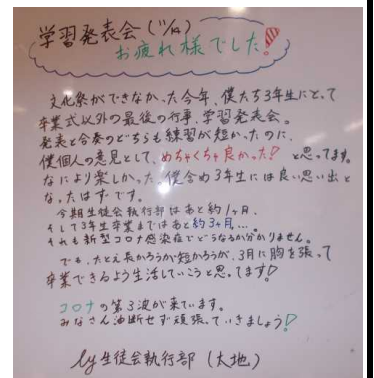 学習発表会(11/14)
お疲れ様でした!
文化祭ができなかった今年、僕たち3年生にとって
卒業式以外の最後の行事、学習発表会。
発表と合奏のどちらも練習が短かったのに、
僕個人の意見として、めちゃくちゃ良かった!と思ってます。
なにより楽しかった。僕含め3年生には良い思い出と
なったはずです。
今期生徒会執行部はあと約1ヶ月、
そして3年生卒業まではあと約3ヶ月…。
それも新型コロナ感染症でどうなるか分かりません。
でも、たとえ長かろうが短かろうが、3月に胸を張って
卒業できるよう生活していこうと思ってます!
コロナの第3波が来ています。
みなさん油断せず頑張っていきましょう!
by生徒会執行部(大地)